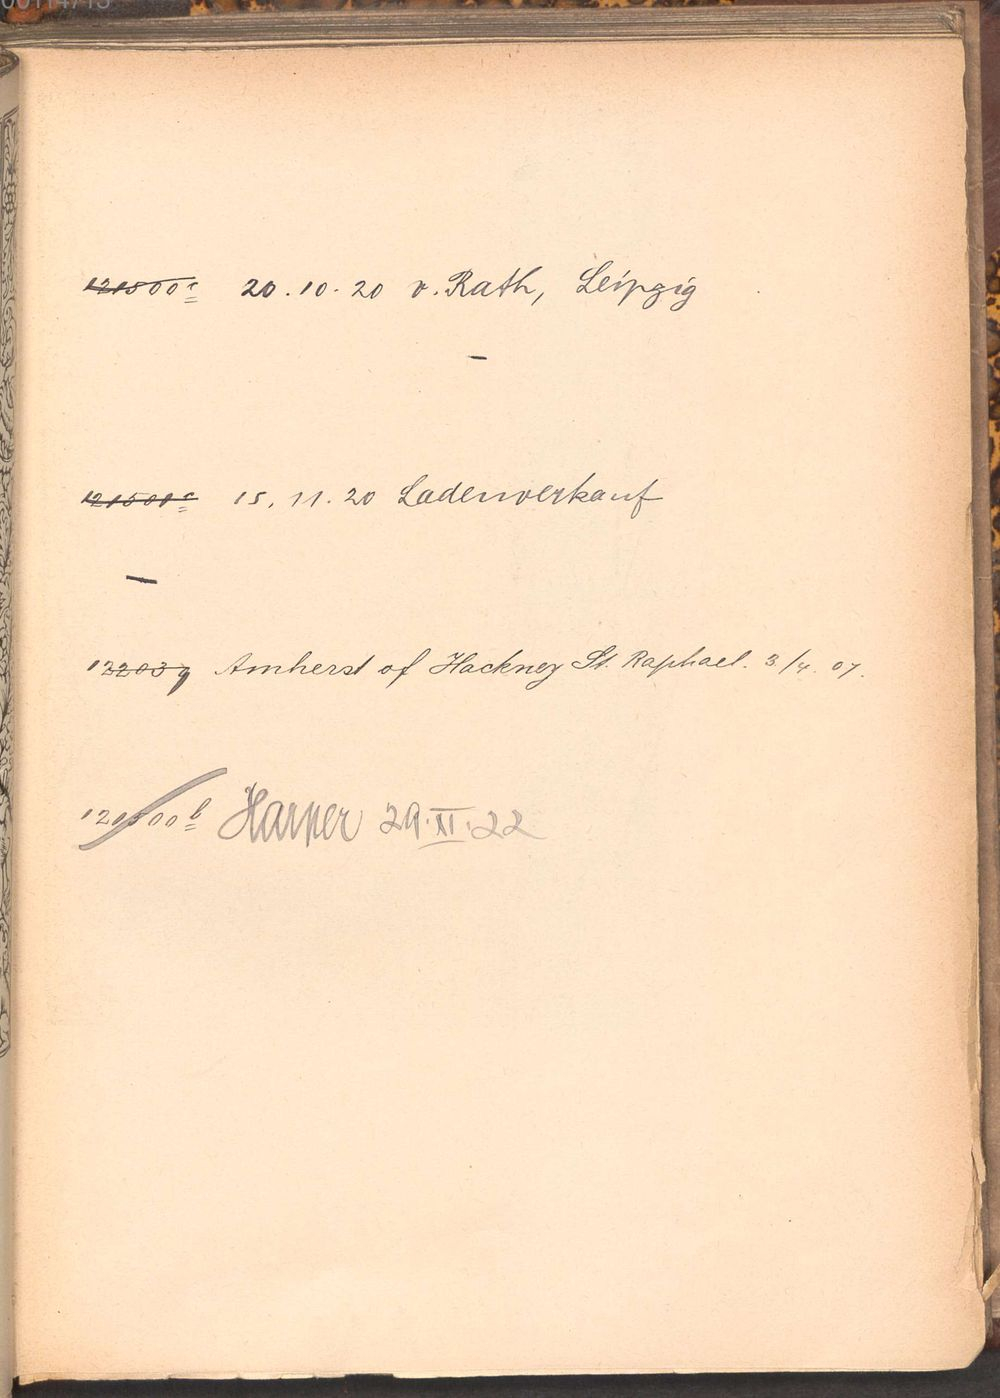 00114713
121500c 20.10.20 v. Rath, Leipzig
121500c 15.11.20 Ladenverkauf
12203g Amherst of Hackney St. Raphael. 3/4. 07.
121500b Harper 29.XI.22